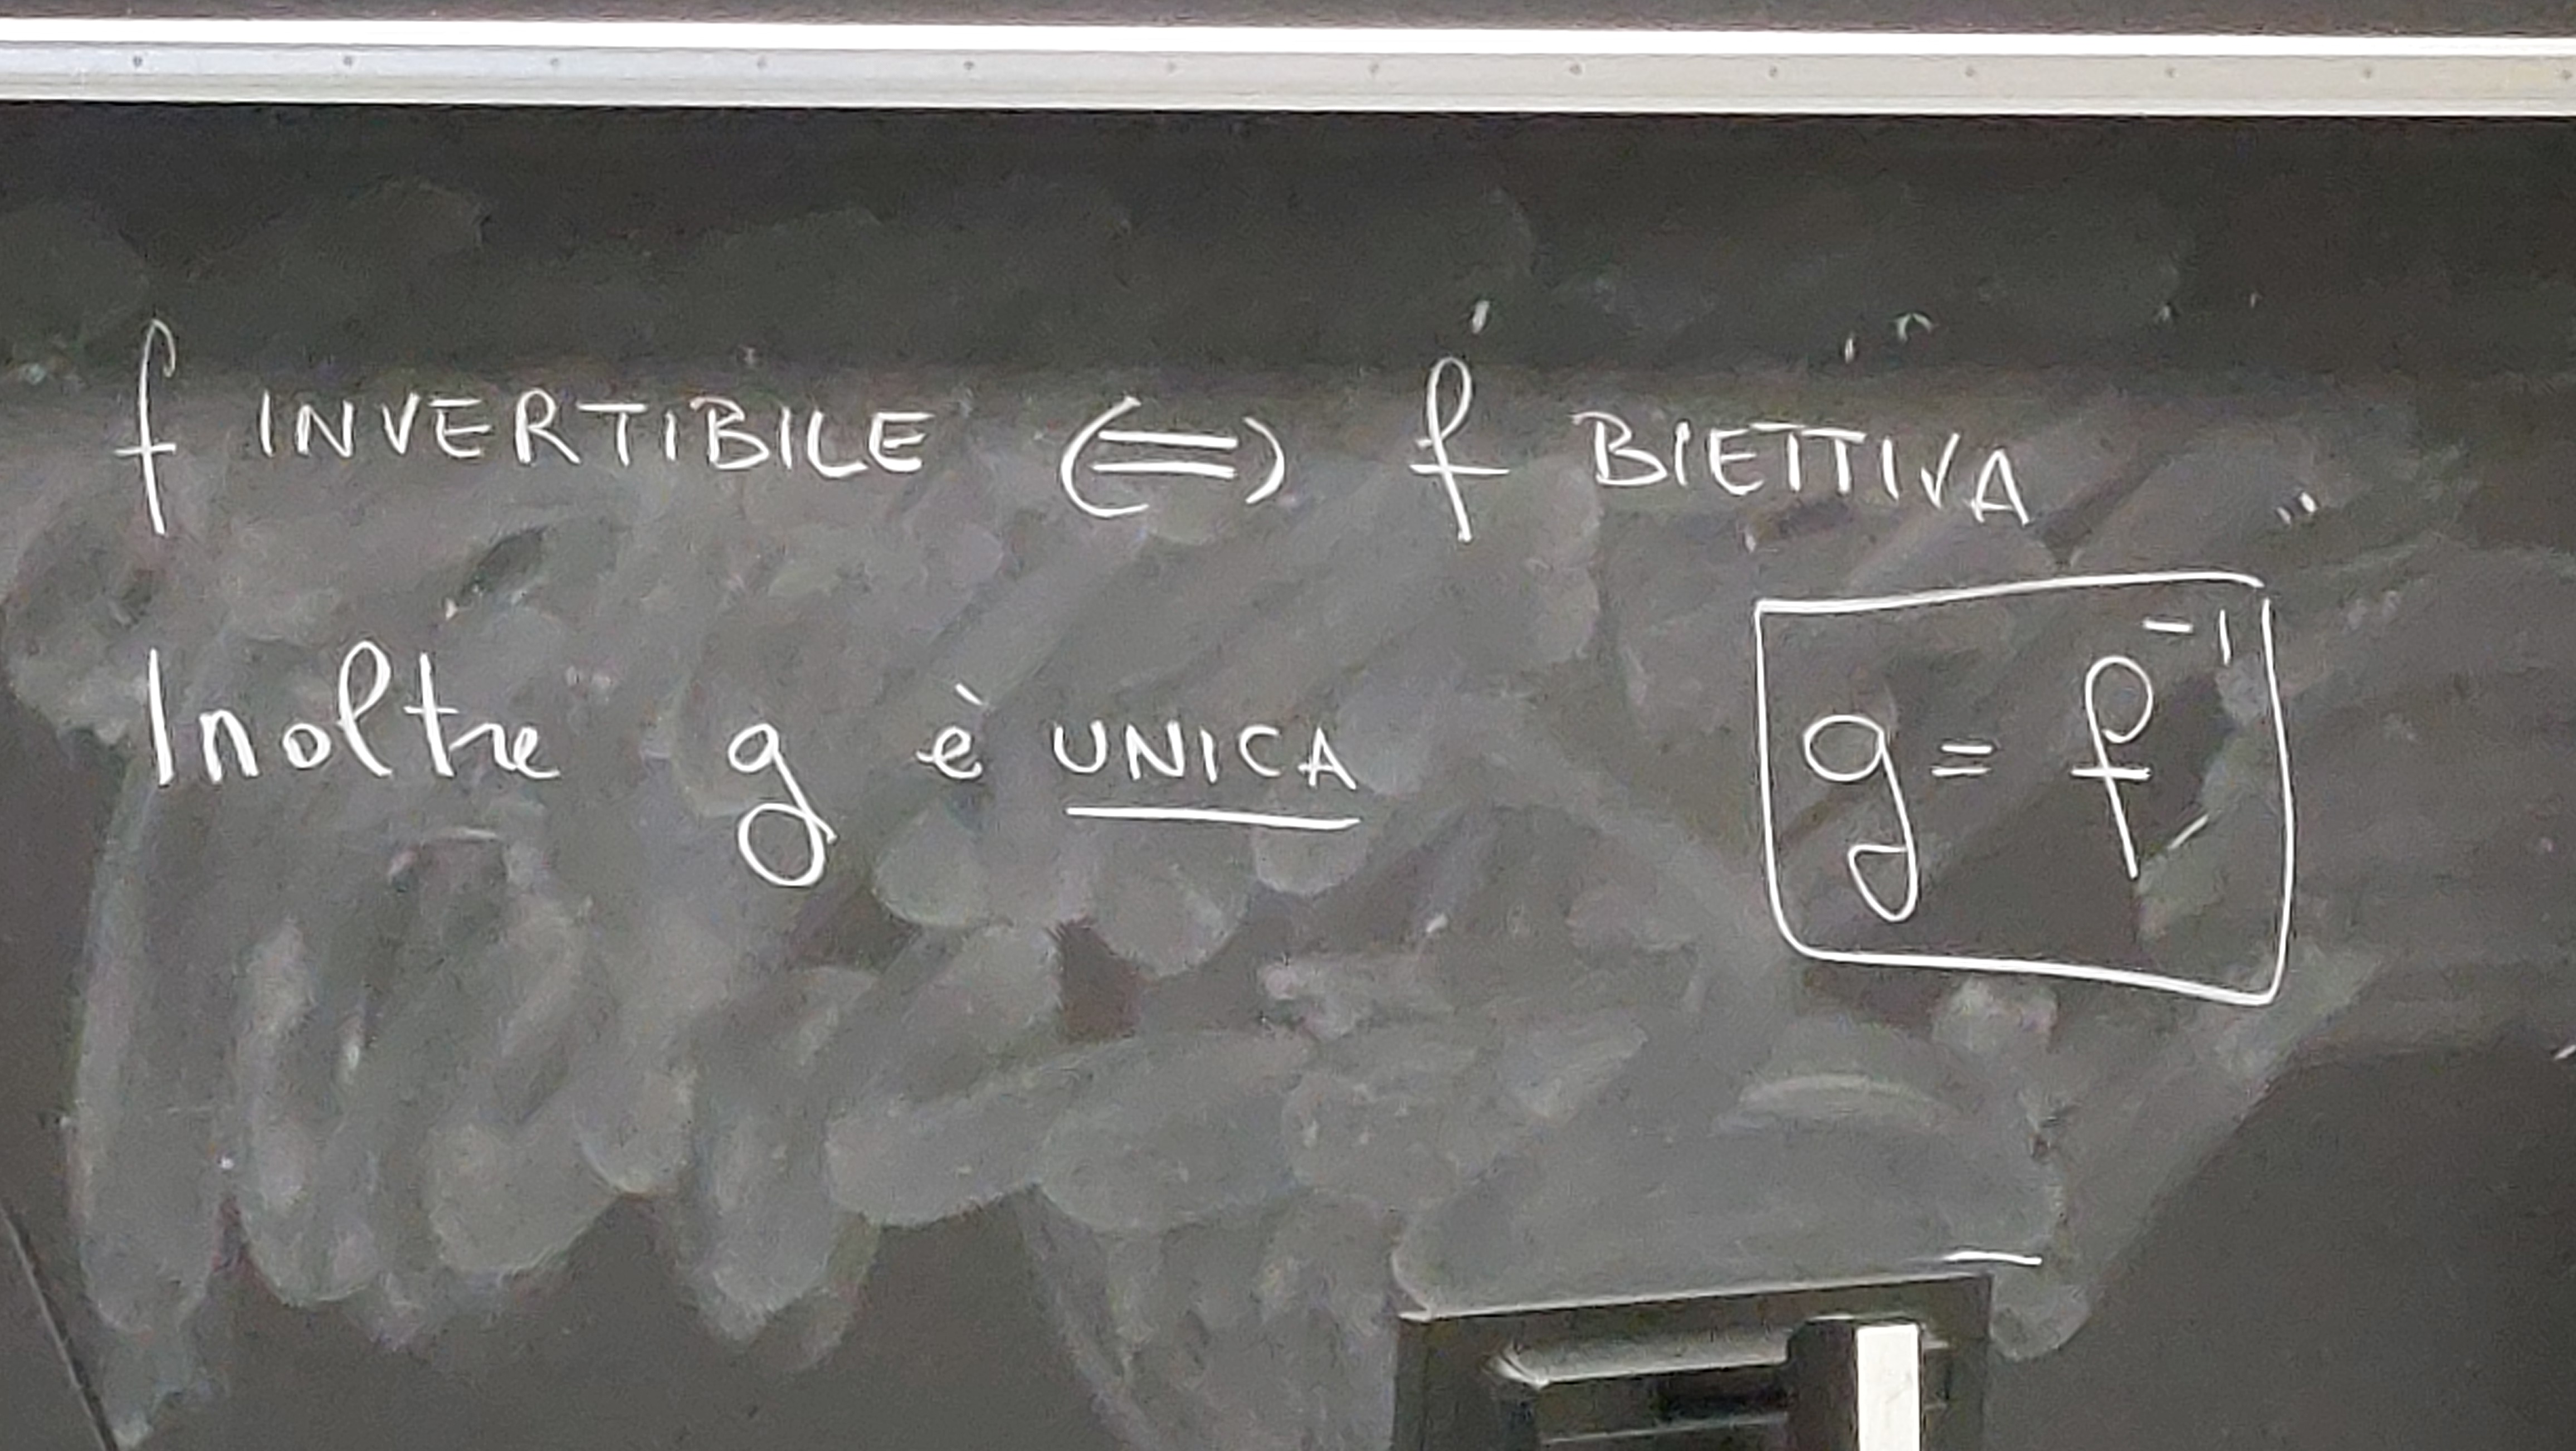 f INVERTIBILE ⇔ f BIETTIVA
Inoltre g è UNICA
g = f⁻¹